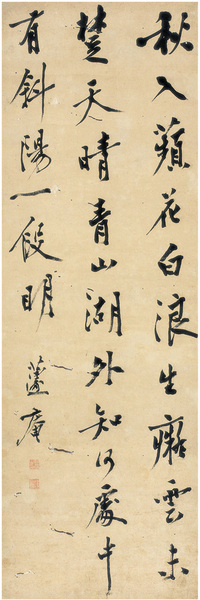 秋入蘋花白浪生癡雲未
楚天晴青山湖外知何處中
有斜陽一段明